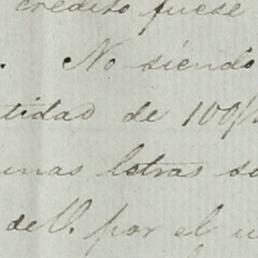 credito fuese
. No siendo
tidad de 100
unas letras so
de V. por el